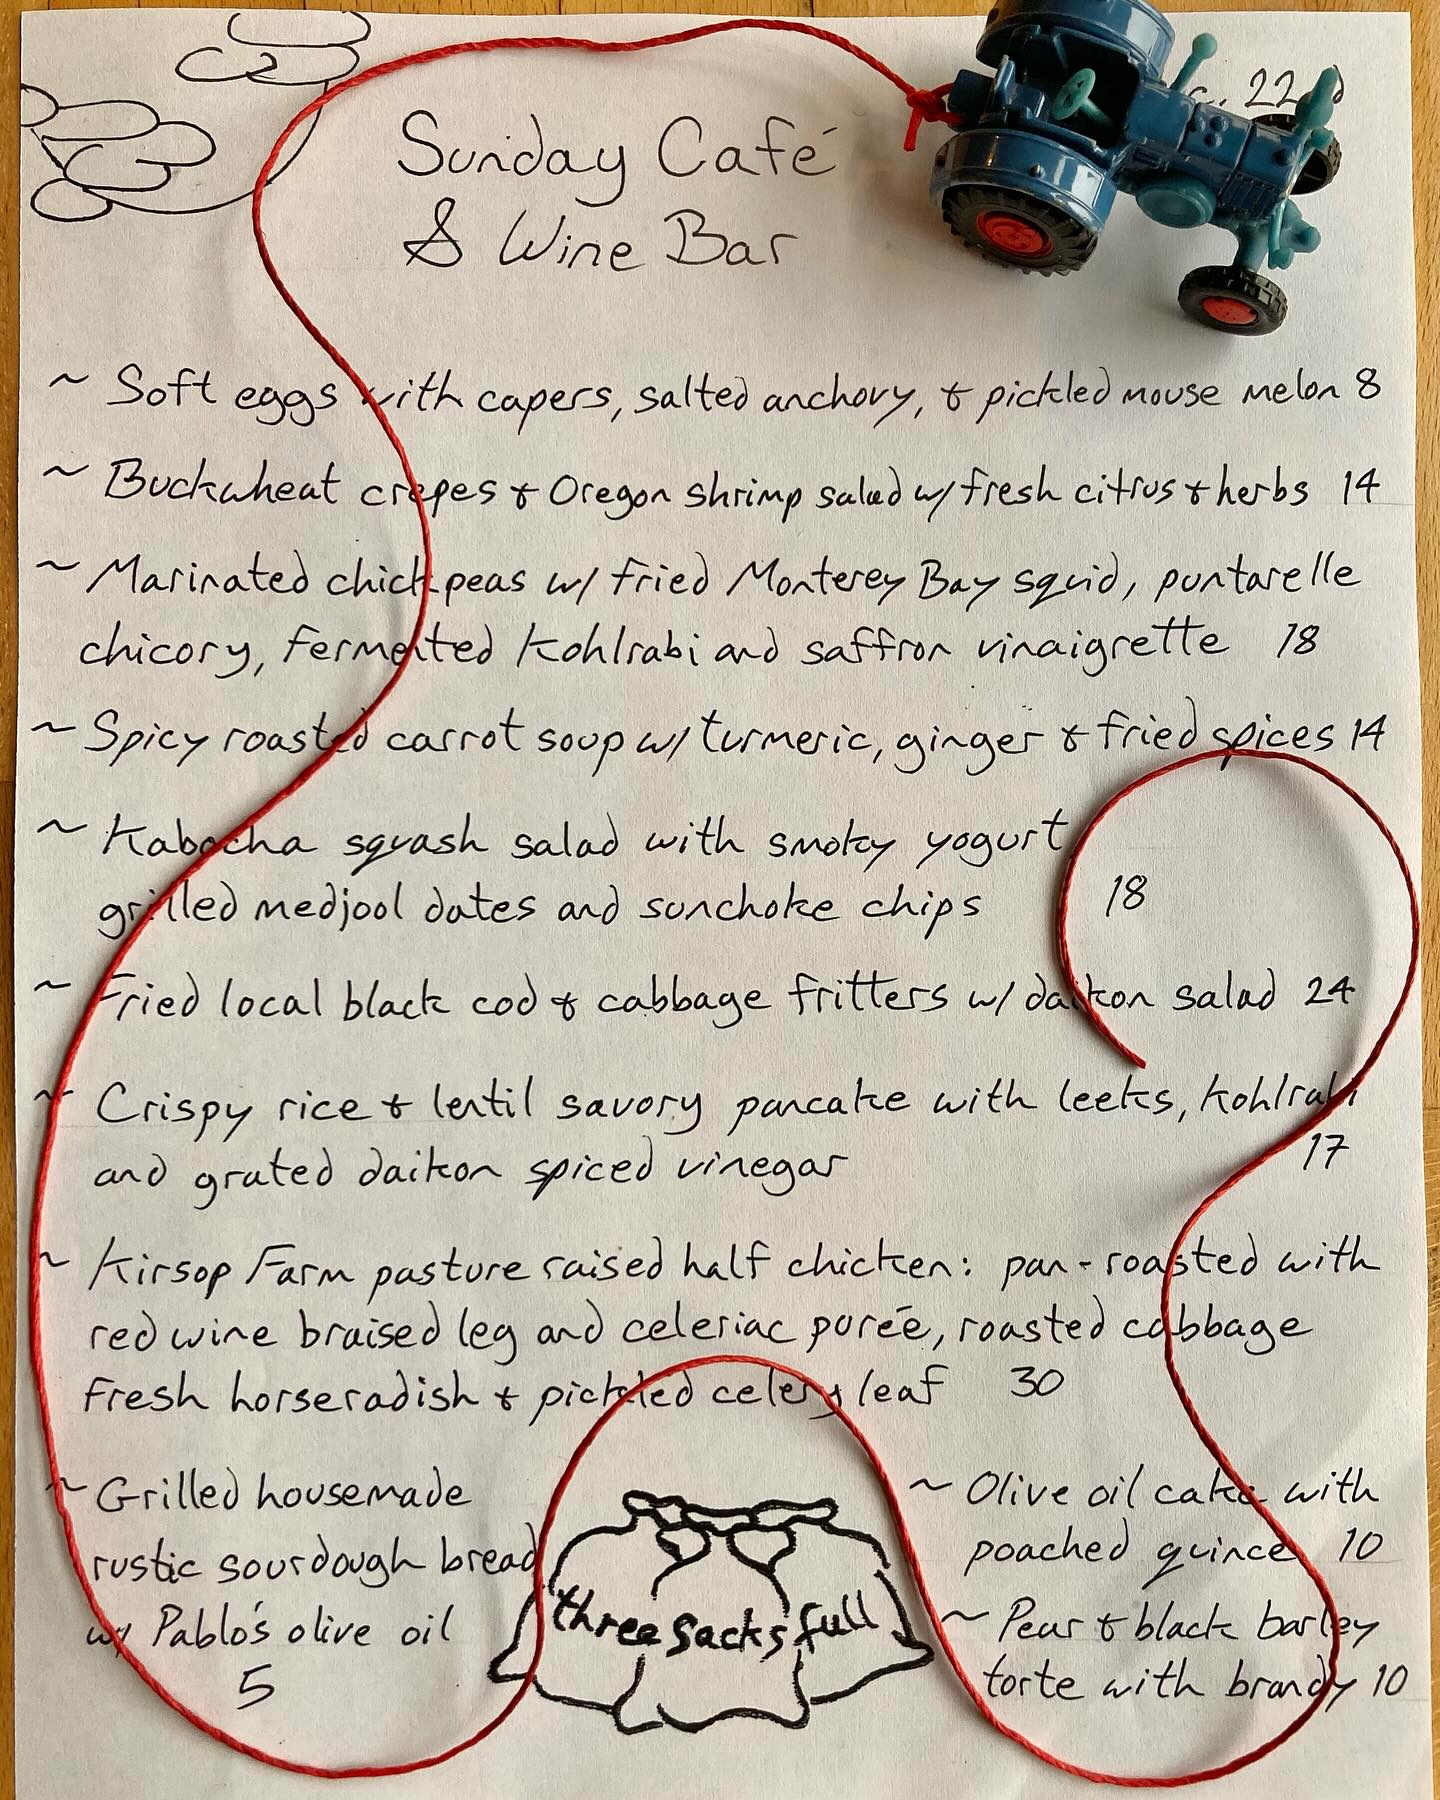 22nd
Sunday Café
& Wine Bar
~ Soft eggs with capers, salted anchovy, & pickled mouse melon 8
~ Buckwheat crepes & Oregon shrimp salad w/ fresh citrus & herbs 14
~ Marinated chickpeas w/ fried Monterey Bay squid, puntarelle
chicory, fermented kohlrabi and saffron vinaigrette 18
~ Spicy roasted carrot soup w/ turmeric, ginger & fried spices 14
~ Kabocha squash salad with smoky yogurt
grilled medjool dates and sunchoke chips 18
~ Fried local black cod & cabbage fritters w/ daikon salad 24
~ Crispy rice & lentil savory pancake with leeks, kohlrabi
and grated daikon spiced vinegar 17
~ Kirsop Farm pasture raised half chicken: pan-roasted with
red wine braised leg and celeriac purée, roasted cabbage
fresh horseradish & pickled celery leaf 30
~ Grilled housemade
rustic sourdough bread
w/ Pablo's olive oil
5
three sacks full
~ Olive oil cake with
poached quince 10
~ Pear & black barley
torte with brandy 10